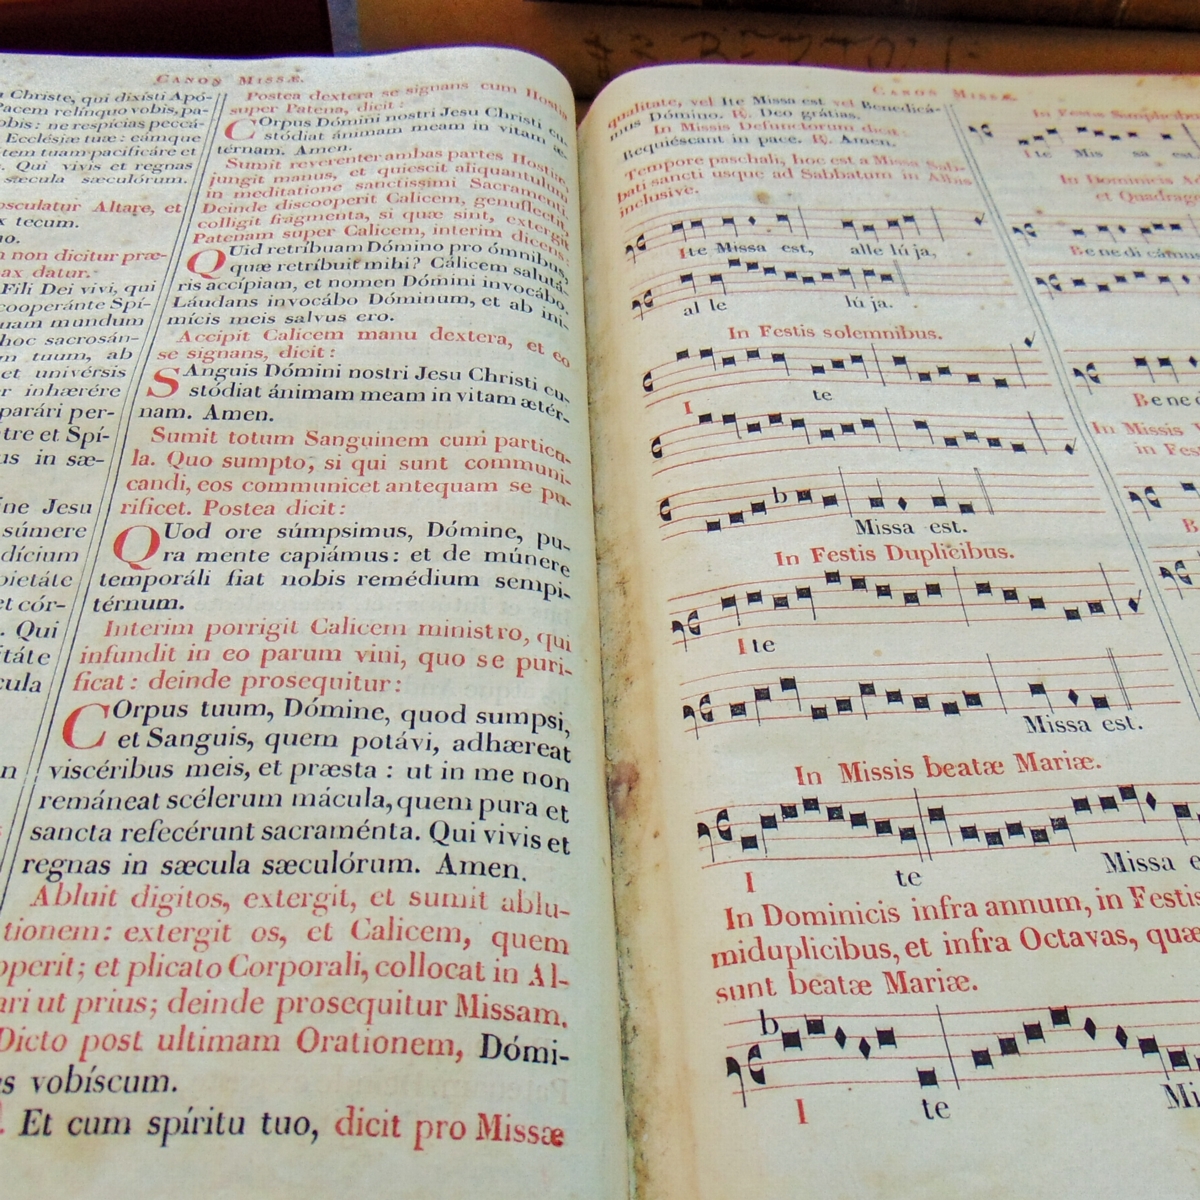 CANON MISSÆ.
Christe, qui dixísti Apó-
Pacem relínquo vobis, pa-
obis: ne respícias peccá-
Ecclésiæ tuæ: eámque
tem tuam pacificáre et
Qui vivis et regnas
sæcula sæculórum.
osculatur Altare, et
x tecum.
n non dicitur præ-
ax datur.
Fili Dei vivi, qui
cooperánte Spí-
uam mundum
hoc sacrosán-
m tuum, ab
et univérsis
r inhærére
parári per-
tre et Spí-
us in sæ-
ine Jesu
súmere
dícium
pietáte
et cór-
. Qui
itáte
cula
Postea dextera se signans cum Hostia
super Patena, dicit:
COrpus Dómini nostri Jesu Christi cu-
stódiat ánimam meam in vitam æ-
térnam. Amen.
Sumit reverenter ambas partes Hostiæ,
jungit manus, et quiescit aliquantulum
in meditatione sanctissimi Sacramenti.
Deinde discooperit Calicem, genuflectit,
colligit fragmenta, si quæ sint, extergit
Patenam super Calicem, interim dicens:
QUid retríbuam Dómino pro ómnibus,
quæ retríbuit mihi? Cálicem salutá-
ris accípiam, et nomen Dómini invocábo.
Láudans invocábo Dóminum, et ab ini-
mícis meis salvus ero.
Accipit Calicem manu dextera, et eo
se signans, dicit:
SAnguis Dómini nostri Jesu Christi cu-
stódiat ánimam meam in vitam ætér-
nam. Amen.
Sumit totum Sanguinem cum particu-
la. Quo sumpto, si qui sunt communi-
candi, eos communicet antequam se pu-
rificet. Postea dicit:
QUod ore súmpsimus, Dómine, pu-
ra mente capiámus: et de múnere
temporáli fiat nobis remédium sempi-
térnum.
Interim porrigit Calicem ministro, qui
infundit in eo parum vini, quo se puri-
ficat: deinde prosequitur:
COrpus tuum, Dómine, quod sumpsi,
et Sanguis, quem potávi, adhæreat
viscéribus meis, et præsta: ut in me non
remáneat scélerum mácula, quem pura et
sancta refecérunt sacraménta. Qui vivis et
regnas in sæcula sæculórum. Amen.
Abluit digitos, extergit, et sumit ablu-
tionem: extergit os, et Calicem, quem
operit; et plicato Corporali, collocat in Al-
ari ut prius; deinde prosequitur Missam.
Dicto post ultimam Orationem, Dómi-
s vobíscum.
Et cum spíritu tuo, dicit pro Missæ
CANON MISSÆ.
qualitate, vel Ite Missa est vel Benedicá-
mus Dómino. ℟. Deo grátias.
In Missis Defunctorum dicit
Requiéscant in pace. ℟. Amen.
Tempore paschali, hoc est a Missa Sab-
bati sancti usque ad Sabbatum in Albis
inclusive.
Ite Missa est, alle lú ja,
al le lú ja.
In Festis solemnibus.
I te
Missa est.
In Festis Duplicibus.
I te
Missa est.
In Missis beatæ Mariæ.
I te Missa e
In Dominicis infra annum, in Festis
miduplicibus, et infra Octavas, quæ
sunt beatæ Mariæ.
I te Mi
In Festis Simplicibu
Ite Mis sa est
In Dominicis Ad
et Quadrag
Be ne di cámus
Be ne d
In Missis
in Fes
B